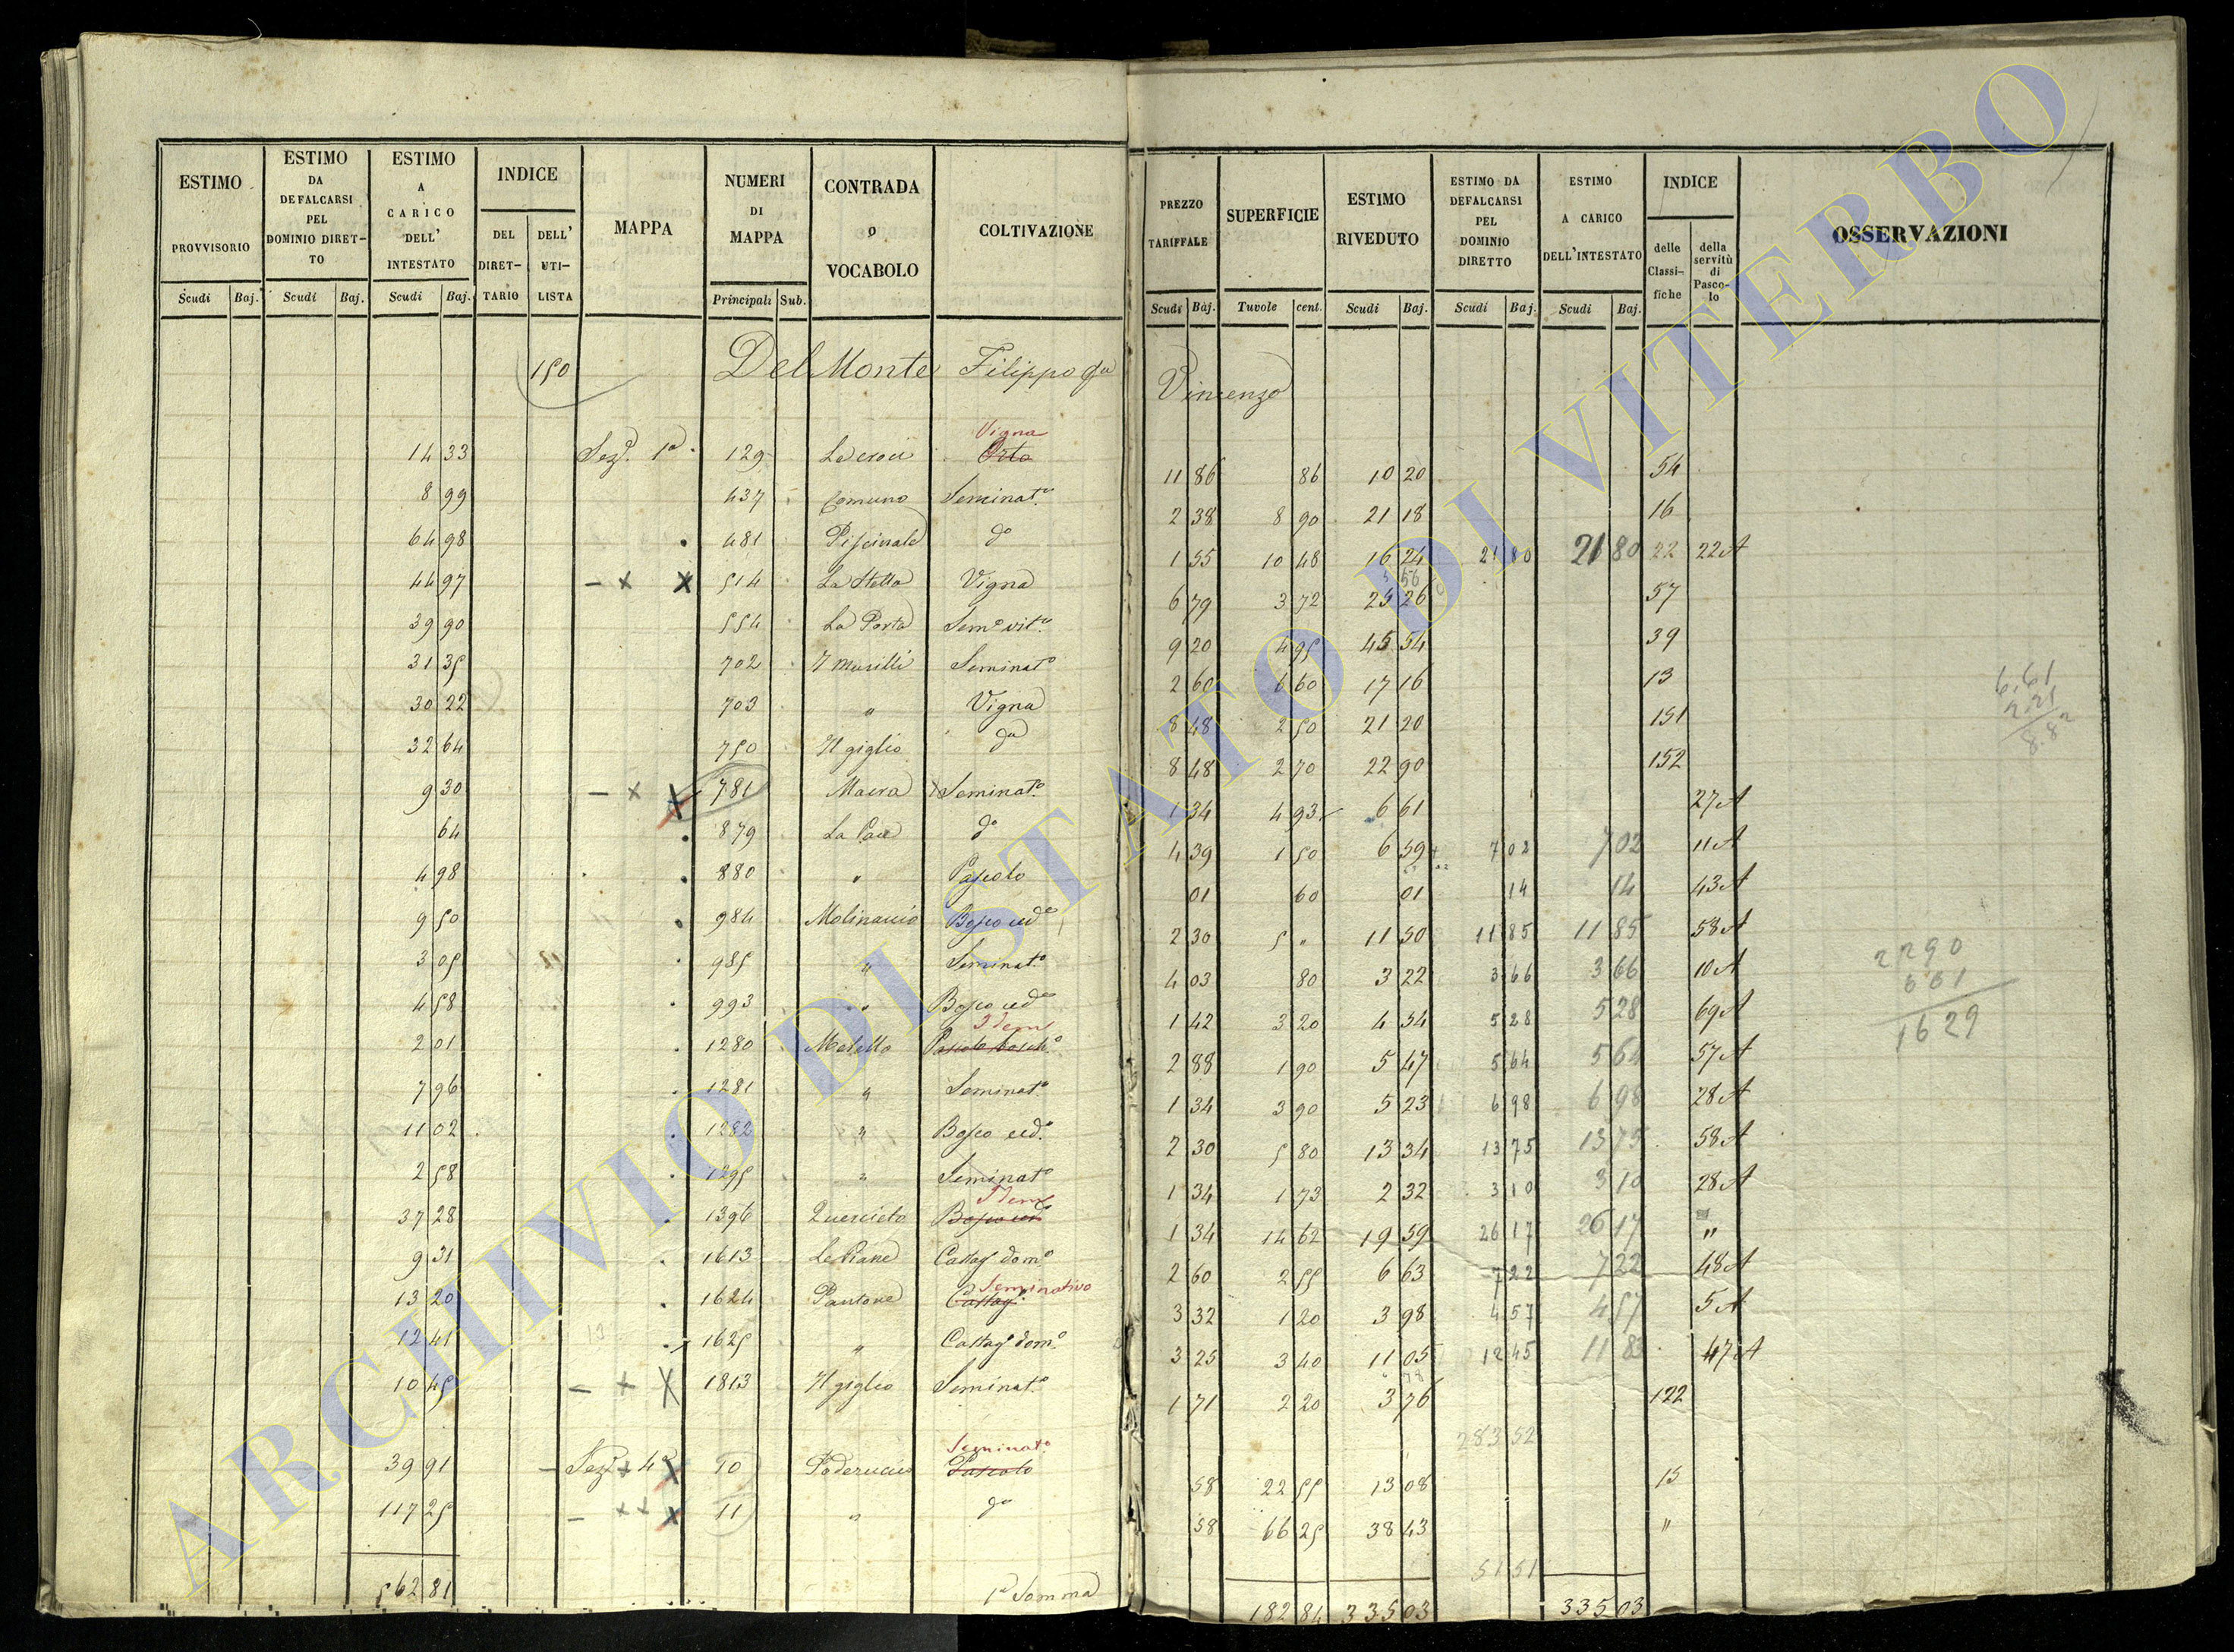 ESTIMO PROVVISORIO Scudi Baj. | ESTIMO DA DEFALCARSI PEL DOMINIO DIRET-TO Scudi Baj. | ESTIMO A CARICO DELL' INTESTATO Scudi Baj. | INDICE DEL DIRET-TARIO | DELL' UTI-LISTA | MAPPA | NUMERI DI MAPPA Principali Sub. | CONTRADA o VOCABOLO | COLTIVAZIONE | PREZZO TARIFFALE Scudi Baj. | SUPERFICIE Tavole cent. | ESTIMO RIVEDUTO Scudi Baj. | ESTIMO DA DEFALCARSI PEL DOMINIO DIRETTO Scudi Baj. | ESTIMO A CARICO DELL'INTESTATO Scudi Baj. | INDICE delle Classi-fiche | della servitù di Pasco-lo | OSSERVAZIONI
150 Del Monte Filippo qm Vincenzo
14 33 Sezº 1ª 129 Le croci Orto Vigna 11 86 86 10 20 54
8 99 437 Comuno Seminatº 2 38 8 90 21 18 16
64 98 481 Piscinale dº 1 55 10 48 16 24 21 80 21 80 22 22 A
44 97 - x x 514 La Stella Vigna 6 79 3 72 25 26 57
39 90 554 La Porta Semº vitº 9 20 4 95 45 54 39
31 35 702 Seminatº 2 60 6 60 17 16 13
30 22 703 " Vigna 8 48 2 50 21 20 151
32 64 750 Il giglio dª 8 48 2 70 22 90 152
9 30 - x x 781 Macra Seminatº 1 34 4 93 6 61 27 A
64 879 La Pace dº 4 39 1 50 6 59 7 02 7 02 11 A
4 98 880 " Pascolo 01 60 01 14 14 43 A
9 50 984 Molinaccio Bosco cedº 2 30 5 " 11 50 11 85 11 85 58 A
3 05 985 " Seminatº 4 03 80 3 22 3 66 3 66 10 A
4 58 993 " Bosco cedº 1 42 3 20 4 54 5 28 5 28 69 A
2 01 1280 Pascolo boschº Idem 2 88 1 90 5 47 5 64 5 64 57 A
7 96 1281 " Seminatº 1 34 3 90 5 23 6 98 6 98 28 A
11 02 1282 " Bosco cedº 2 30 5 80 13 34 13 75 13 75 58 A
2 58 1295 " Seminatº 1 34 1 73 2 32 3 10 3 10 28 A
37 28 1396 Querceto Bosco cedº Idem 1 34 14 62 19 59 26 17 26 17 "
9 31 1613 Le Piane Castagº domº 2 60 2 55 6 63 7 22 7 22 48 A
13 20 1624 Pantane Castagº Seminativo 3 32 1 20 3 98 4 57 4 57 5 A
12 41 1625 " Castagº domº 3 25 3 40 11 05 12 45 11 83 47 A
10 45 - + X 1813 Il giglio Seminatº 1 71 2 20 3 76 122
283 52
39 91 - Sezº 4ª 10 Poderuccio Pascolo Seminatº 58 22 55 13 08 15
117 25 - x x x 11 " dº 58 66 25 38 43 "
51 51
562 81 1ª Somma 182 84 335 03 335 03
6,61
2.21
8.82
22 90
6 61
16 29
ARCHIVIO DI STATO DI VITERBO